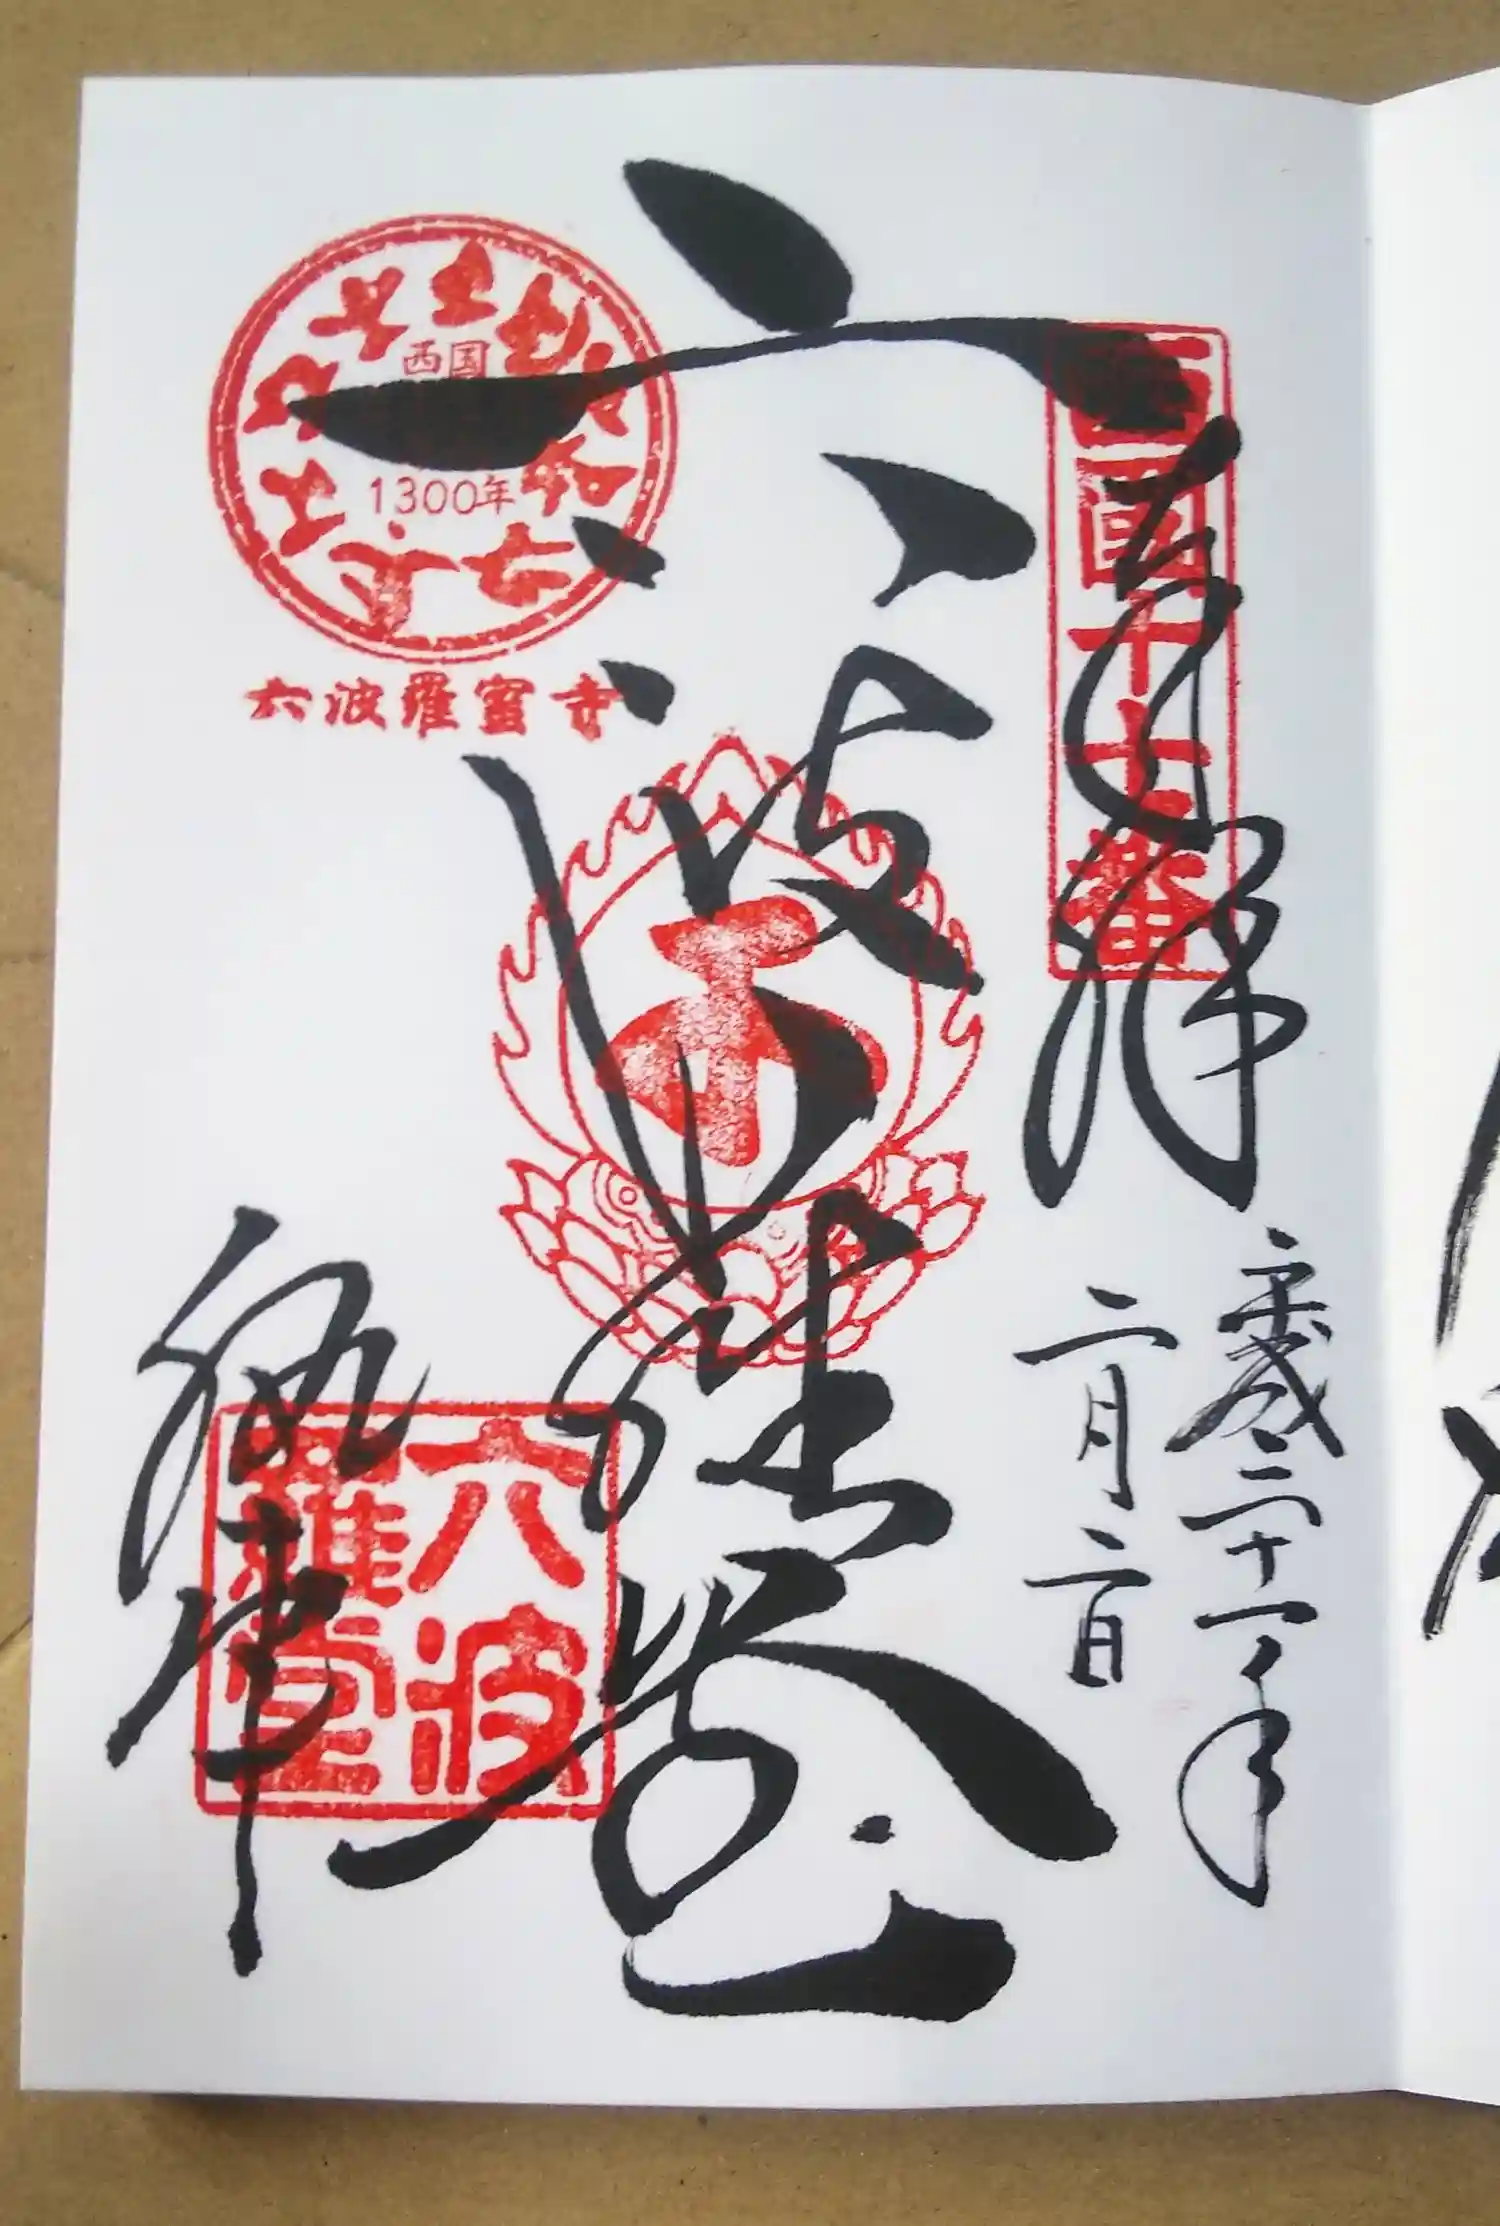 奉拝
西国十七番
平成三十一年
二月二日
六波羅堂
西国
1300年
六波羅蜜寺
六波
羅堂